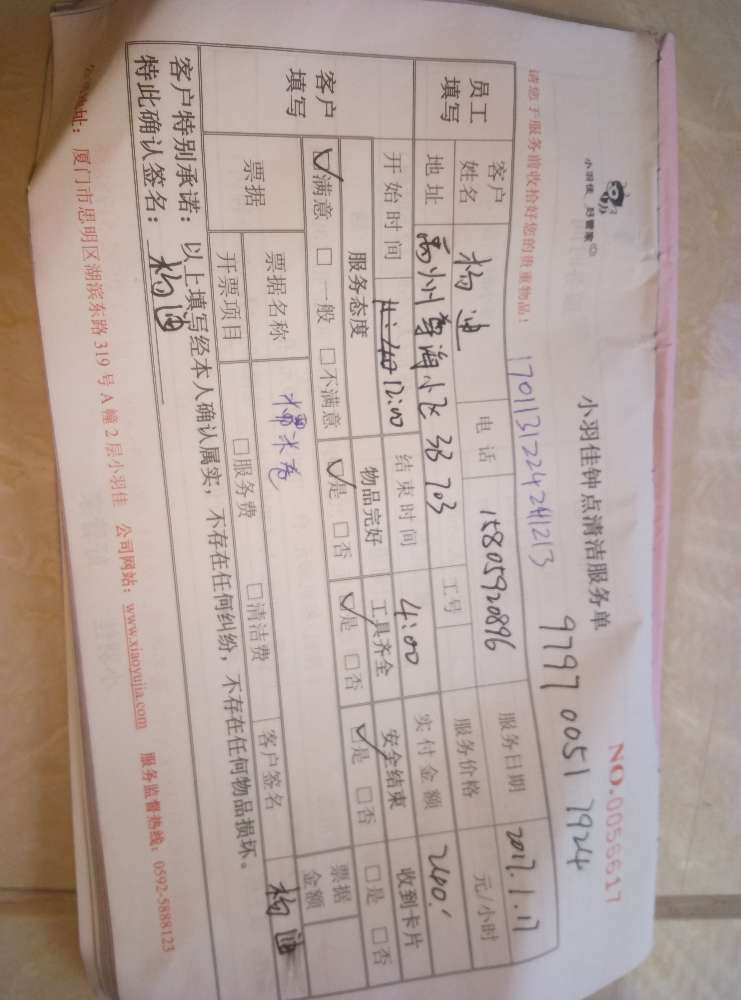 小羽佳 好管家
小羽佳钟点清洁服务单
NO.0056617
9797 0051 7924
请您于服务前收拾好您的贵重物品!
1701131224241213
员工填写 客户姓名 杨迪 电话 15805920896 服务日期 2017.1.17
地址 禹州尊海小区 38 703 工号 服务价格 元/小时
开始时间 12:00 结束时间 4:00 实付金额 240.
客户填写 服务态度 物品完好 工具齐全 安全结束 收到卡片
☑满意 □一般 □不满意 ☑是 □否 ☑是 □否 ☑是 □否 □是 □否
票据 票据名称 票据金额
开票项目 □服务费 □清洁费 客户签名 杨迪
客户特别承诺:以上填写经本人确认属实,不存在任何纠纷,不存在任何物品损坏。
特此确认签名: 杨迪
地址:厦门市思明区湖滨东路 319 号 A 幢 2 层小羽佳 公司网站:www.xiaoyujia.com 服务监督热线:0592-5888123